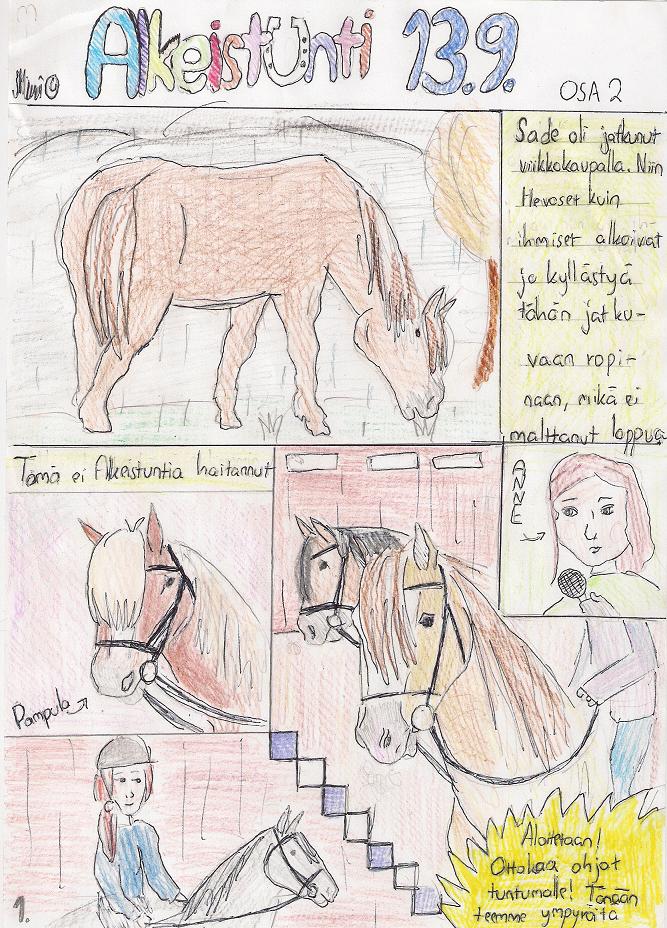 Alkeistunti 13.9.
OSA 2
Sade oli jatkunut
viikkokaupalla. Niin
Hevoset kuin
ihmiset alkoivat
jo kyllästyä
tähän jatku-
vaan ropi-
naan, mikä ei
malttanut loppua
Tämä ei Alkeistuntia haitannut
ANNE
Pampula
Aloitetaan!
Ottakaa ohjat
tuntumalle! Tänään
teemme ympyröitä
1.